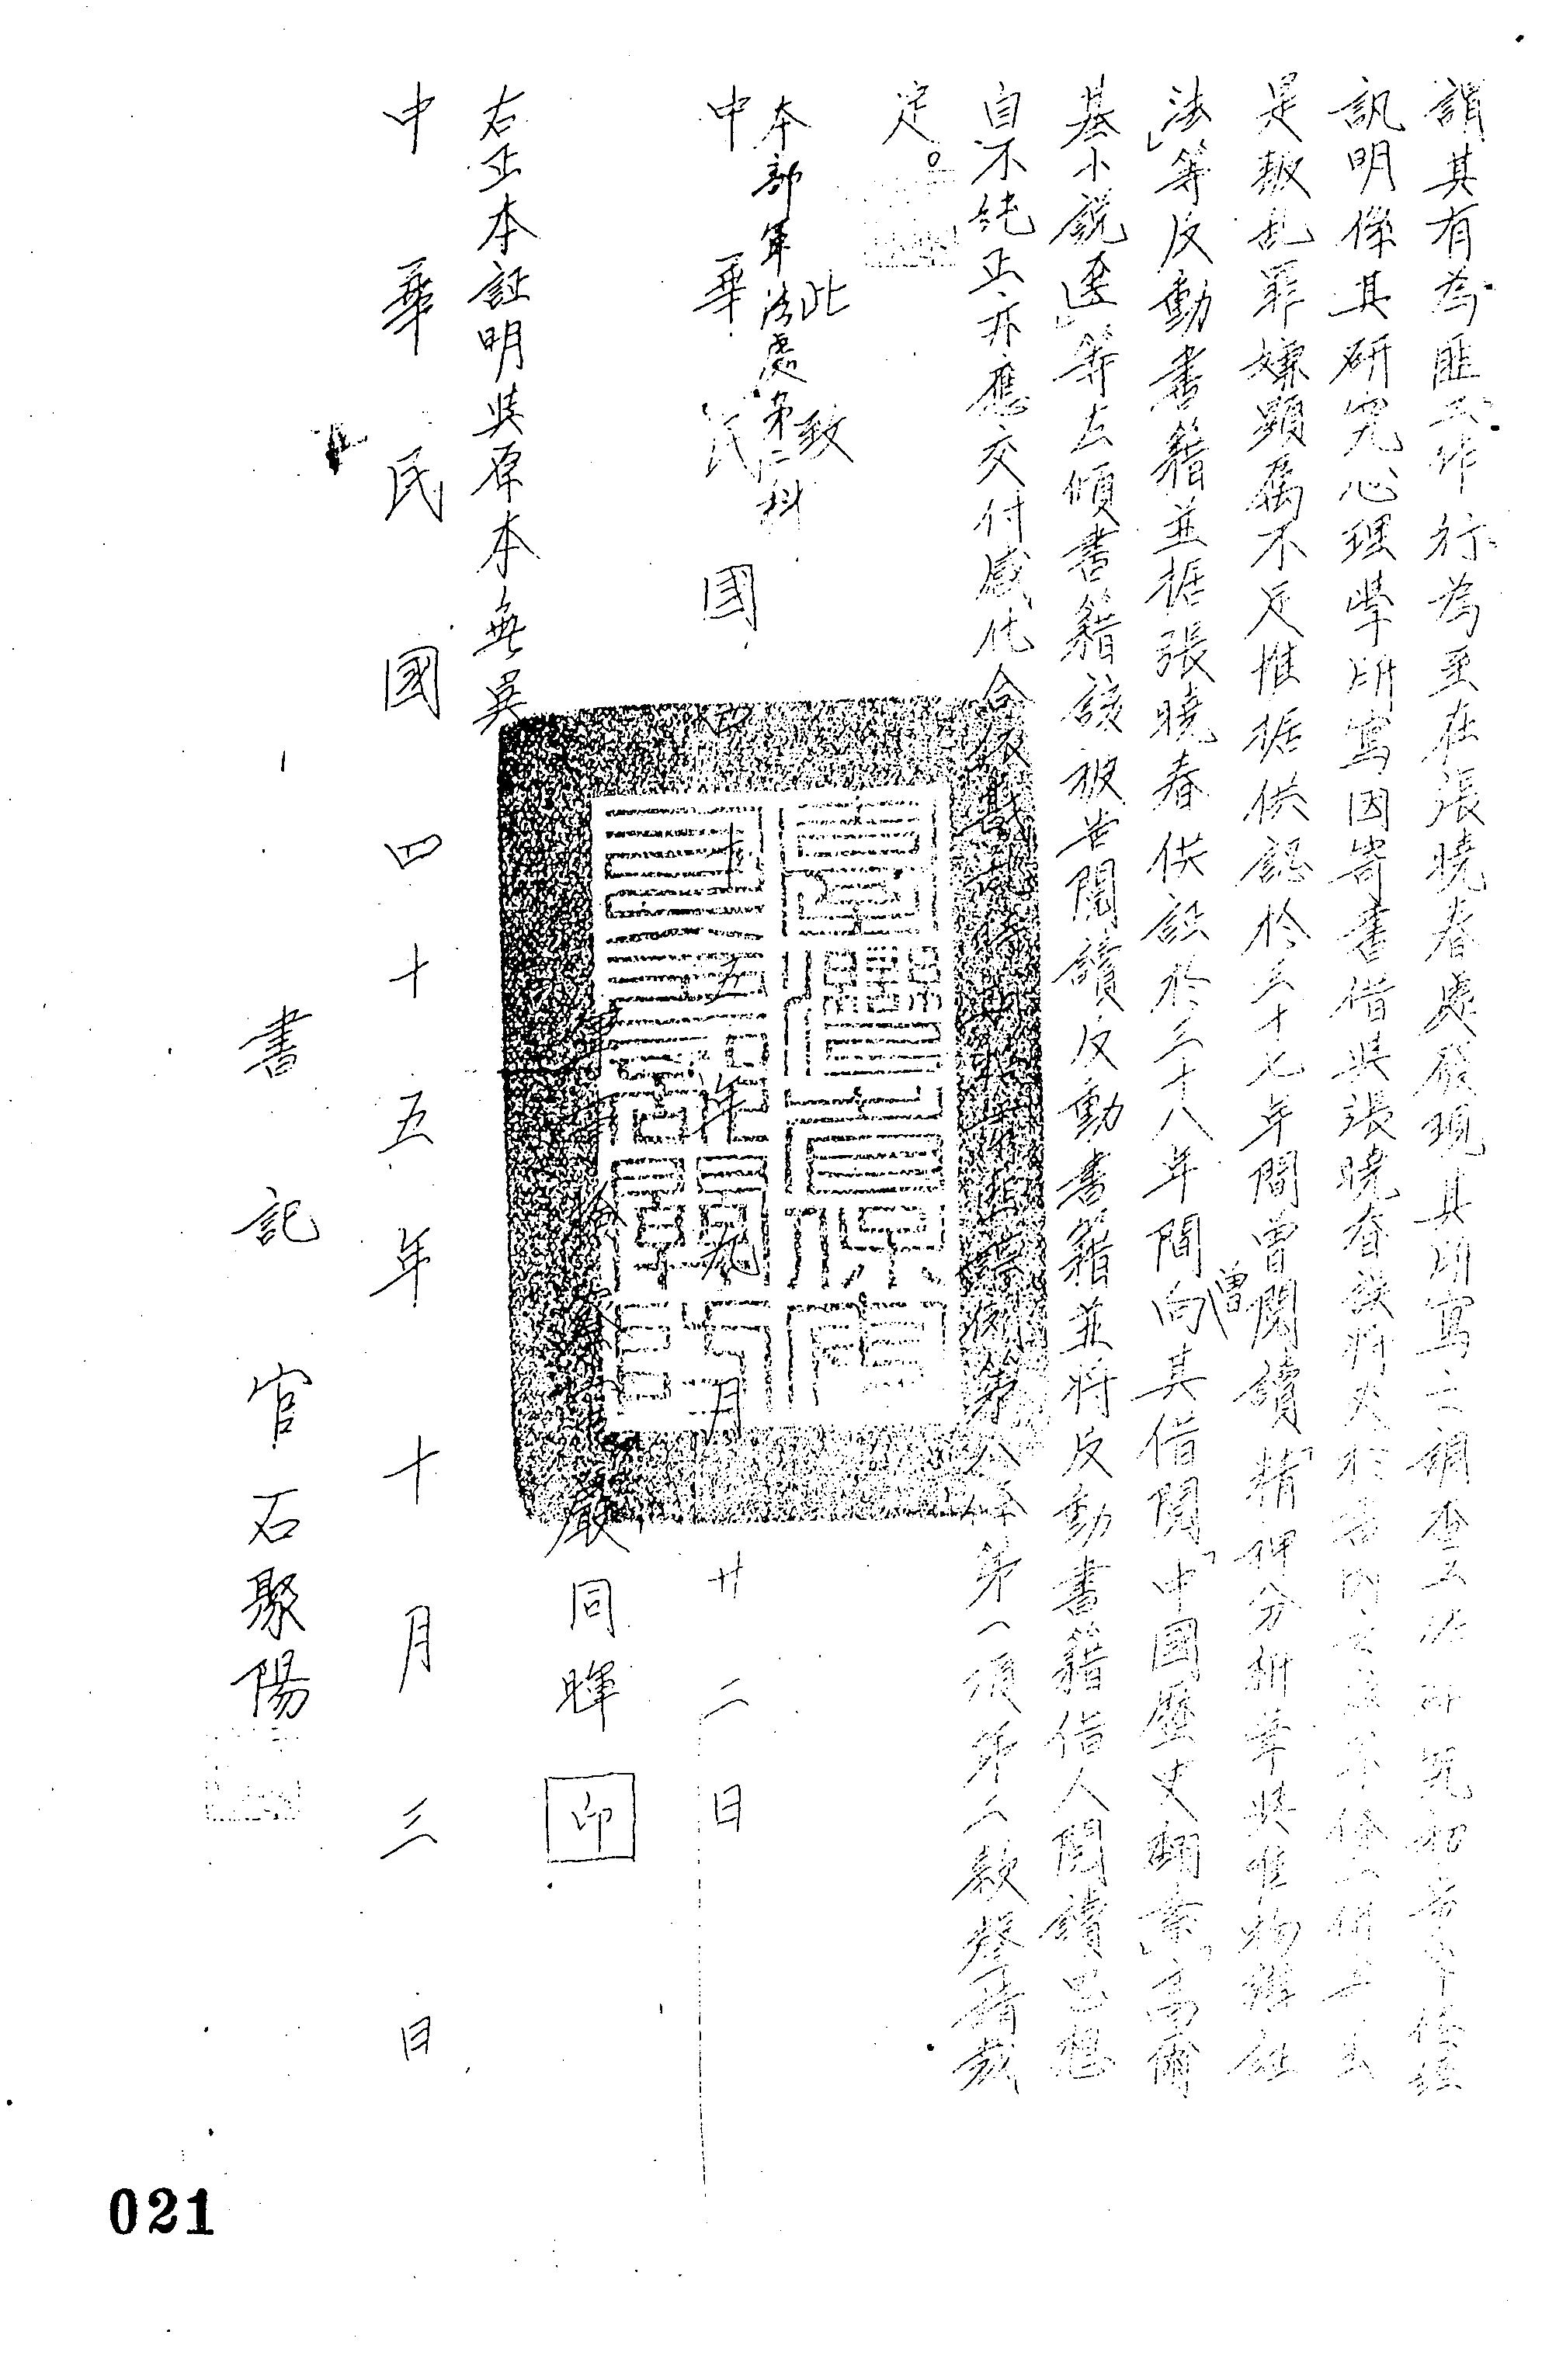 謂其有為匪工作行為至在張曉春處發現其所寫之調查五法研究
訊明係其研究心理學所寫因寄書借與張曉春誤將夾於書內
是叛乱罪嫌顯屬不足惟据供認於三十七年間曾閱讀「精神分析學與唯物辯証
法」等反動書籍並据張曉春供証於三十八年間曾向其借閱「中國歷史翻案」、高爾
基小說選」等左傾書籍該被告閱讀反動書籍並將反動書籍借人閱讀思想
自不純正亦應交付感化合依戡亂時期檢肅匪諜條例第八條第一項第二款聲請裁
定。
此致
本部軍法處第二科
中華民國四十五年九月廿二日
嚴同暉 印
右正本証明與原本無異
中華民國四十五年十月三日
書記官石聚陽
021